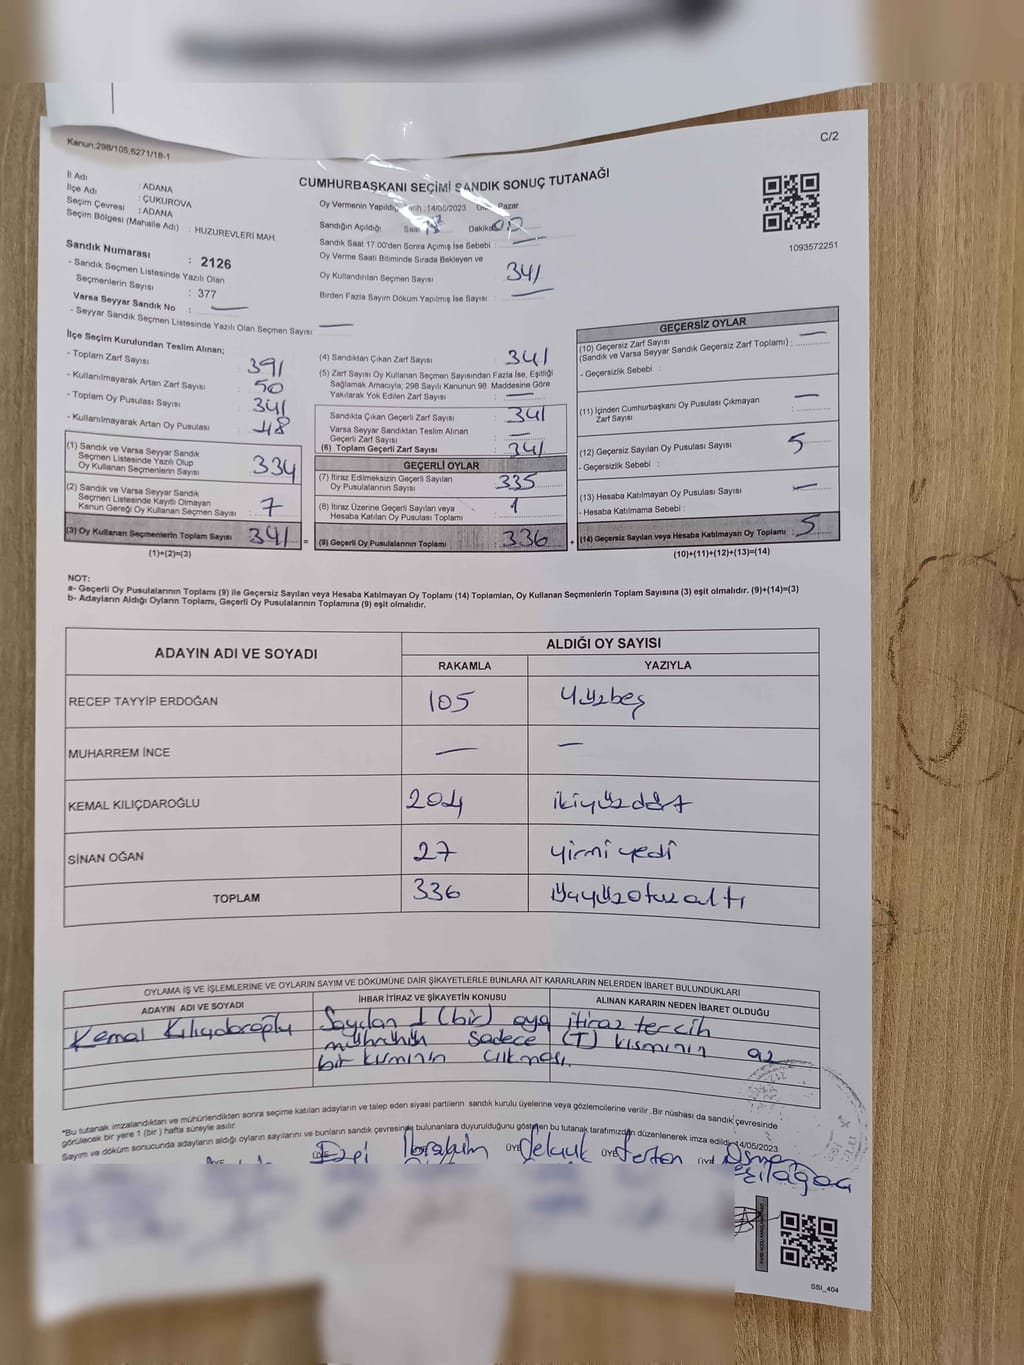 C/2
Kanun;298/105,6271/18-1
CUMHURBAŞKANI SEÇİMİ SANDIK SONUÇ TUTANAĞI
İl Adı : ADANA
İlçe Adı : ÇUKUROVA
Seçim Çevresi : ADANA
Seçim Bölgesi (Mahalle Adı) : HUZUREVLERİ MAH.
Sandık Numarası : 2126
- Sandık Seçmen Listesinde Yazılı Olan
Seçmenlerin Sayısı : 377
Varsa Seyyar Sandık No : —
- Seyyar Sandık Seçmen Listesinde Yazılı Olan Seçmen Sayısı —
Oy Vermenin Yapıldığı :14/05/2023 Pazar
Sandığın Açıldığı Saat Dakika
Sandık Saat 17.00'den Sonra Açımış İse Sebebi : —
Oy Verme Saati Bitiminde Sırada Bekleyen ve
Oy Kullandırılan Seçmen Sayısı 341
Birden Fazla Sayım Döküm Yapılmış İse Sayısı —
1093572251
İlçe Seçim Kurulundan Teslim Alınan;
- Toplam Zarf Sayısı 391
- Kullanılmayarak Artan Zarf Sayısı 50
- Toplam Oy Pusulası Sayısı 341
- Kullanılmayarak Artan Oy Pusulası 48
(1) Sandık ve Varsa Seyyar Sandık
Seçmen Listesinde Yazılı Olup
Oy Kullanan Seçmenlerin Sayısı 334
(2) Sandık ve Varsa Seyyar Sandık
Seçmen Listesinde Kayıtlı Olmayan
Kanun Gereği Oy Kullanan Seçmen Sayısı 7
(3) Oy Kullanan Seçmenlerin Toplam Sayısı 341 =
(1)+(2)=(3)
(4) Sandıktan Çıkan Zarf Sayısı 341
(5) Zarf Sayısı Oy Kullanan Seçmen Sayısından Fazla İse, Eşitliği
Sağlamak Amacıyla, 298 Sayılı Kanunun 98. Maddesine Göre
Yakılarak Yok Edilen Zarf Sayısı : —
Sandıkta Çıkan Geçerli Zarf Sayısı : 341
Varsa Seyyar Sandıktan Teslim Alınan
Geçerli Zarf Sayısı : —
(6) Toplam Geçerli Zarf Sayısı : 341
GEÇERLİ OYLAR
(7) İtiraz Edilmeksizin Geçerli Sayılan
Oy Pusulalarının Sayısı : 335
(8) İtiraz Üzerine Geçerli Sayılan veya
Hesaba Katılan Oy Pusulası Toplamı : 1
(9) Geçerli Oy Pusulalarının Toplamı : 336 +
GEÇERSİZ OYLAR
(10) Geçersiz Zarf Sayısı
(Sandık ve Varsa Seyyar Sandık Geçersiz Zarf Toplamı) : —
- Geçersizlik Sebebi :
(11) İçinden Cumhurbaşkanı Oy Pusulası Çıkmayan
Zarf Sayısı —
(12) Geçersiz Sayılan Oy Pusulası Sayısı 5
- Geçersizlik Sebebi :
(13) Hesaba Katılmayan Oy Pusulası Sayısı —
- Hesaba Katılmama Sebebi :
(14) Geçersiz Sayılan veya Hesaba Katılmayan Oy Toplamı : 5
(10)+(11)+(12)+(13)=(14)
NOT:
a- Geçerli Oy Pusulalarının Toplamı (9) ile Geçersiz Sayılan veya Hesaba Katılmayan Oy Toplamı (14) Toplamları, Oy Kullanan Seçmenlerin Toplam Sayısına (3) eşit olmalıdır. (9)+(14)=(3)
b- Adayların Aldığı Oyların Toplamı, Geçerli Oy Pusulalarının Toplamına (9) eşit olmalıdır.
ADAYIN ADI VE SOYADI
ALDIĞI OY SAYISI
RAKAMLA YAZIYLA
RECEP TAYYİP ERDOĞAN 105 Yüzbeş
MUHARREM İNCE — —
KEMAL KILIÇDAROĞLU 204 ikiyüzdört
SİNAN OĞAN 27 yirmiyedi
TOPLAM 336 üçyüzotuzaltı
OYLAMA İŞ VE İŞLEMLERİNE VE OYLARIN SAYIM VE DÖKÜMÜNE DAİR ŞİKAYETLERLE BUNLARA AİT KARARLARIN NELERDEN İBARET BULUNDUKLARI
ADAYIN ADI VE SOYADI İHBAR İTİRAZ VE ŞİKAYETİN KONUSU ALINAN KARARIN NEDEN İBARET OLDUĞU
Kemal Kılıçdaroğlu Sayılan 1 (bir) oya itiraz tercih
mührünün sadece (T) kısmının az
bir kısmının çıkması.
*Bu tutanak imzalandıktan ve mühürlendikten sonra seçime katılan adayların ve talep eden siyasi partilerin sandık kurulu üyelerine veya gözlemcilerine verilir .Bir nüshası da sandık çevresinde
görülecek bir yere 1 (bir ) hafta süreyle asılır.
Sayım ve döküm sonucunda adayların aldığı oyların sayılarını ve bunların sandık çevresinde bulunanlara duyurulduğunu gösteren bu tutanak tarafımızdan düzenlenerek imza edildi. 14/05/2023
İbrahim
SSI_404